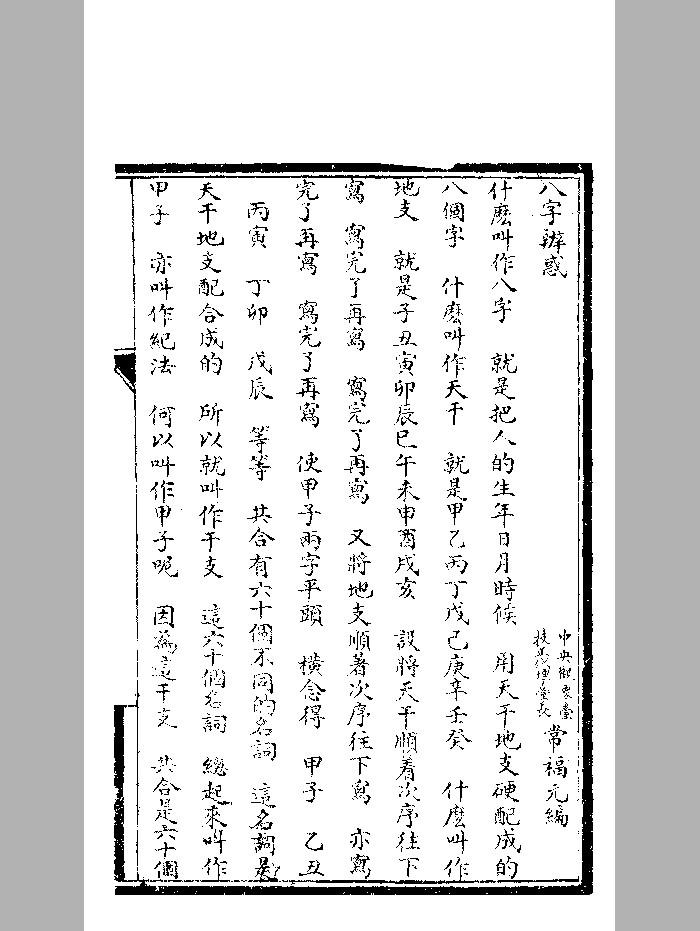 八字辨惑
中央觀象臺
技正代理臺長
常福元編
什麽叫作八字　就是把人的生年日月時候　用天干地支硬配成的
八個字　什麽叫作天干　就是甲乙丙丁戊己庚辛壬癸　什麽叫作
地支　就是子丑寅卯辰巳午未申酉戌亥　設將天干順着次序往下
寫　寫完了再寫　寫完了再寫　又將地支順著次序往下寫　亦寫
完了再寫　寫完了再寫　使甲子兩字平頭　橫念得　甲子　乙丑
丙寅　丁卯　戊辰　等等　共合有六十個不同的名詞　這名詞是
天干地支配合成的　所以就叫作干支　這六十個名詞　總起來叫作
甲子　亦叫作紀法　何以叫作甲子呢　因爲這干支　共合是六十個